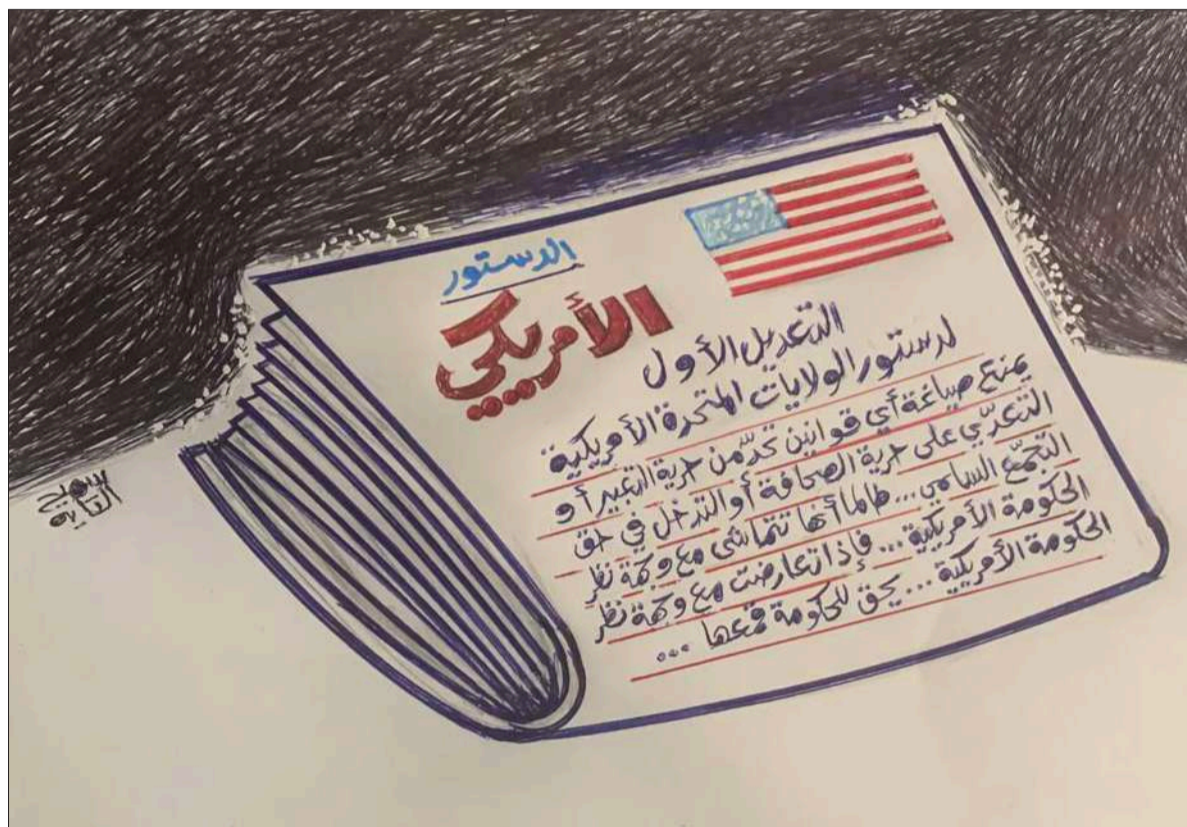 الدستور
الأمريكي
التعديل الأول
لدستور الولايات المتحدة الأمريكية
يمنع صياغة أي قوانين تحدّ من حرية التعبير أو
التعدّي على حرية الصحافة أو التدخل في حق
التجمّع السلمي... طالما أنها تتماشى مع وجهة نظر
الحكومة الأمريكية... فإذا تعارضت مع وجهة نظر
الحكومة الأمريكية... يحق للحكومة قمعها ...
سميح